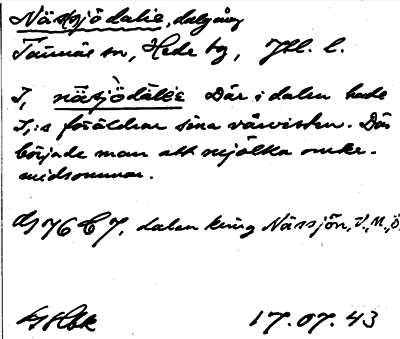 Nässjödalie, dalgång
Tännäs sn, Hede tg, Jtl. l.
I, näsjödàlie Där i dalen hade
I,:s föräldrar sina vårvisten. Där
började man att mjölka omkr.
midsommar.
76 C 7, dalen kring Nässjön, V., M., Ö.
17.07.43